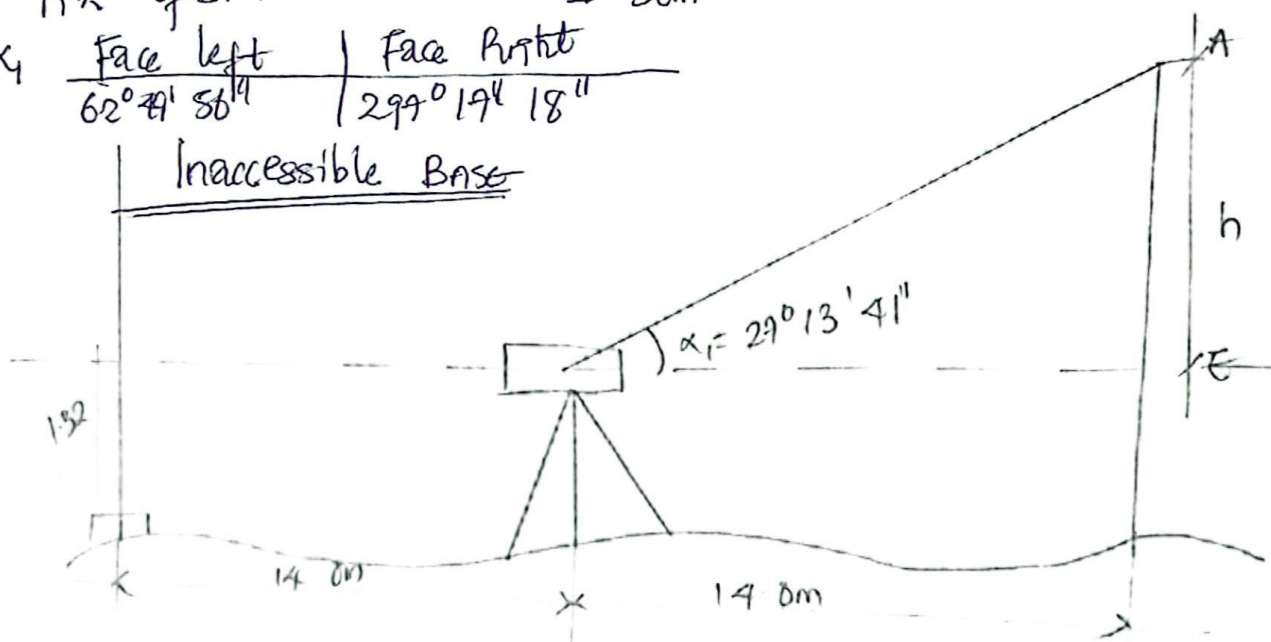 Face left | Face Right
62° 49' 56" | 297° 17' 18"
Inaccessible BASE
A
h
α₁ = 27° 13' 41"
E
1.32
14 0m
14 0m